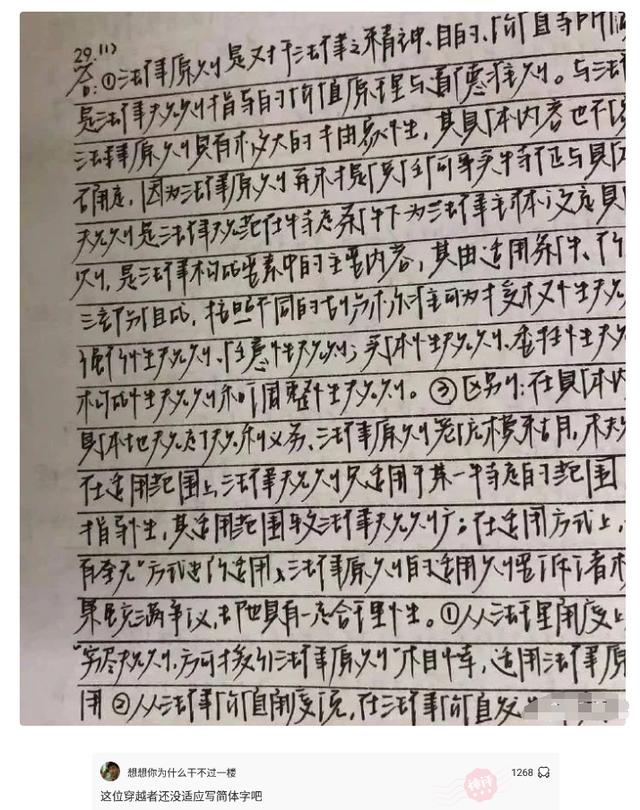 29.(1)
答:①法律原则是对于法律之精神、目的、价值等所
是法律规则指导的价值原理与道德准则。与法
法律原则具有较大的自由裁量性,其具体内容也不
确定,因为法律原则再不是任何事实特征与具
规则是法律规范在特定条件下为法律主体设定具
则,是法律构成要素中的主要内容,其由适用条件、行
三部分组成,按照不同的划分标准可为授权性规
强行性规则、任意性规则;实体性规则、委任性规
构成性规则和调整性规则。③区别:在具体内
具体地规定了权利义务、法律原则
在适用范围上法律规则只适用于某一特定的范围
指导性,其适用范围较法律规则广;在适用方式上,
有全无"方式进行适用、法律原则的适用则
果虽充满争议,却也具有一定合理性。①从法理角度上
"穷尽规则,方可援引法律原则"相悖,适用法律原
用②从法律价值角度说,在法律价值
想想你为什么干不过一楼
1268
这位穿越者还没适应写简体字吧
神评